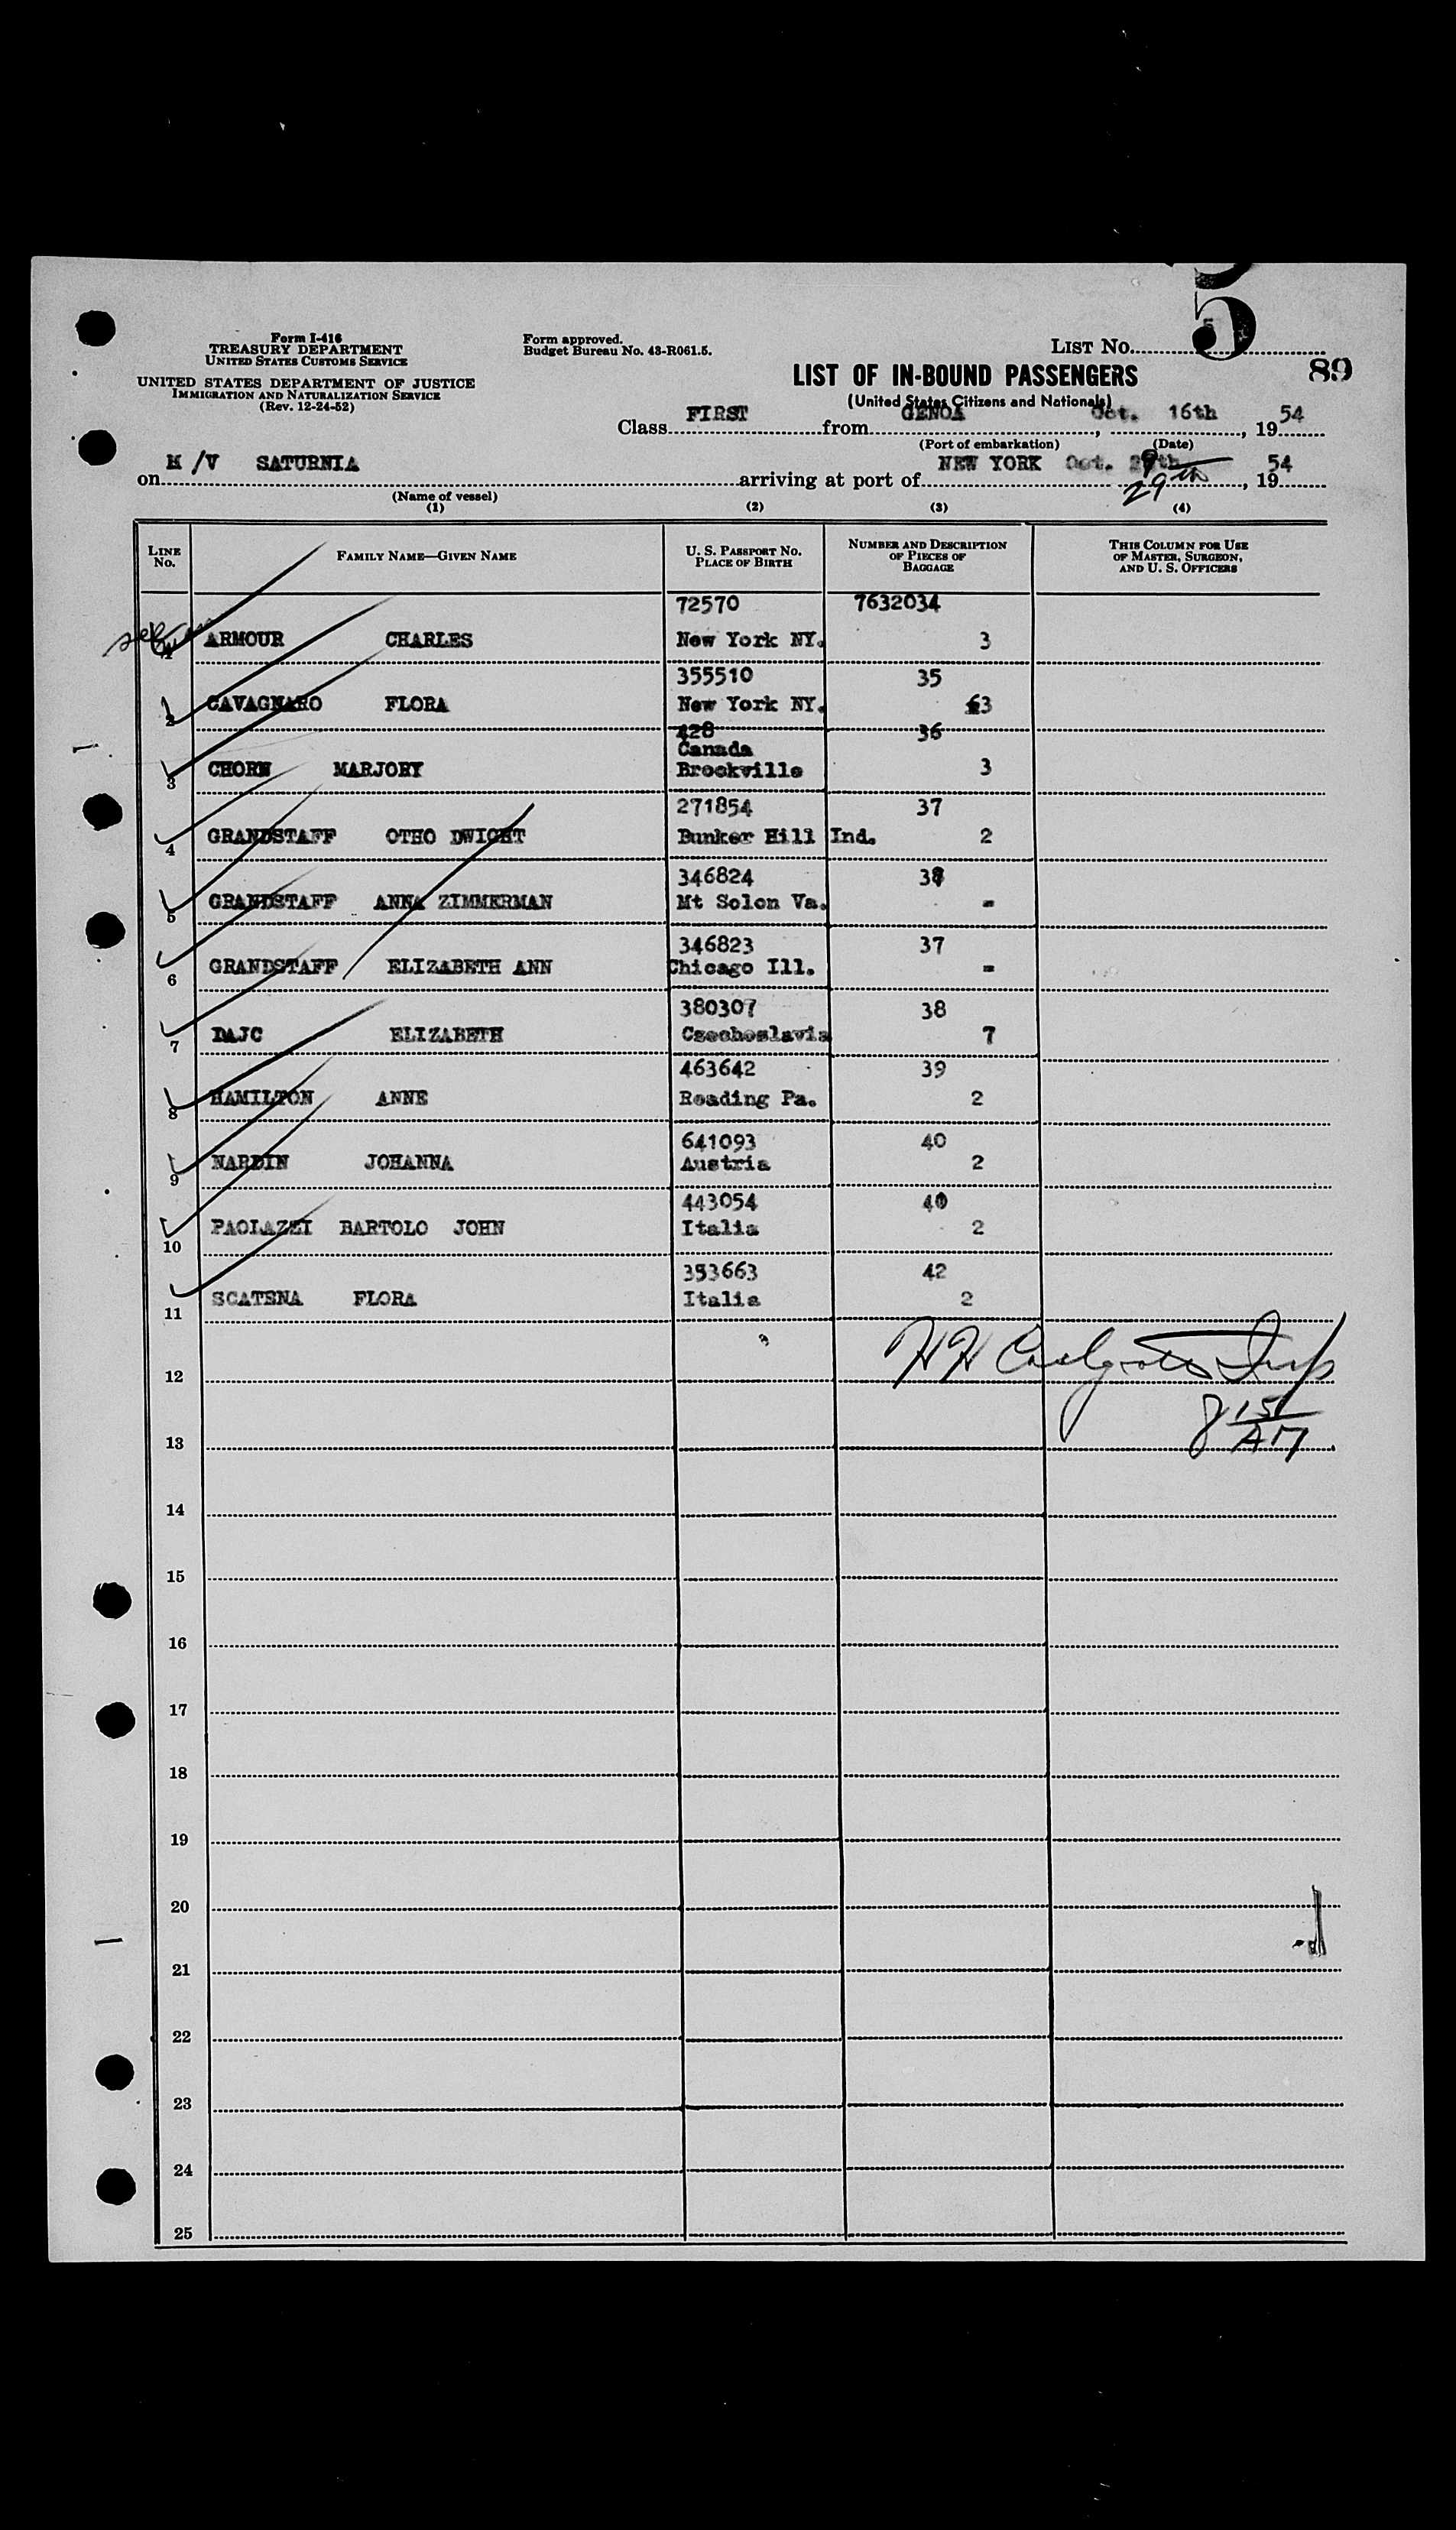 5
Form I-416
TREASURY DEPARTMENT
UNITED STATES CUSTOMS SERVICE
UNITED STATES DEPARTMENT OF JUSTICE
IMMIGRATION AND NATURALIZATION SERVICE
(Rev. 12-24-52)
Form approved.
Budget Bureau No. 43-R061.5.
LIST NO. 5
89
LIST OF IN-BOUND PASSENGERS
(United States Citizens and Nationals)
Class FIRST from GENOA, Oct. 16th, 1954
(Port of embarkation) (Date)
on M/V SATURNIA arriving at port of NEW YORK Oct. 29th, 1954
29th
(Name of vessel)
(1) (2) (3) (4)
LINE NO. FAMILY NAME—GIVEN NAME U. S. PASSPORT NO. PLACE OF BIRTH NUMBER AND DESCRIPTION OF PIECES OF BAGGAGE THIS COLUMN FOR USE OF MASTER, SURGEON, AND U. S. OFFICERS
72570 7632034
1 ARMOUR CHARLES New York NY. 3
355510 35
2 CAVAGNARO FLORA New York NY. 3
428 36
Canada
3 CHORN MARJORY Brockville 3
271854 37
4 GRANDSTAFF OTHO DWIGHT Bunker Hill Ind. 2
346824 38
5 GRANDSTAFF ANNA ZIMMERMAN Mt Solon Va. -
346823 37
6 GRANDSTAFF ELIZABETH ANN Chicago Ill. -
380307 38
7 DAJC ELIZABETH Czechoslavia 7
463642 39
8 HAMILTON ANNE Reading Pa. 2
641093 40
9 NARDIN JOHANNA Austria 2
443054
10 PAOLAZZI BARTOLO JOHN Italia 2
353663 42
11 SCATENA FLORA Italia 2
12
8 15/AM
13
14
15
16
17
18
19
20
21
22
23
24
25